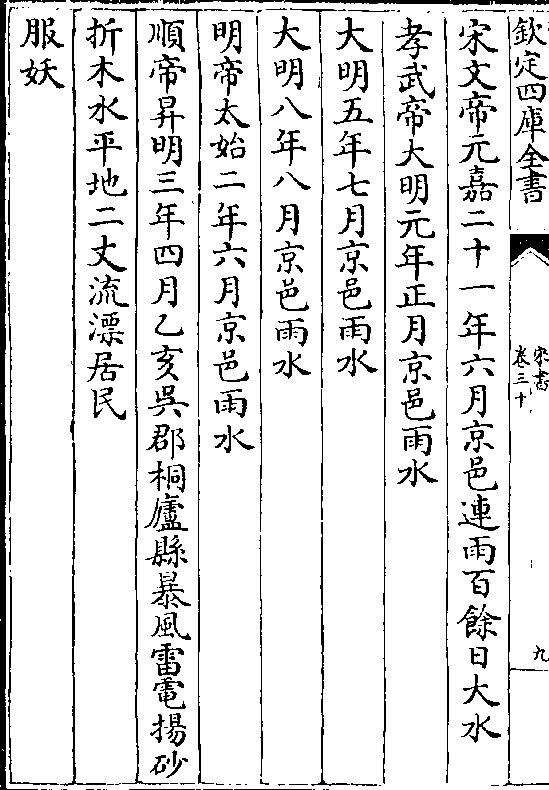 欽定四庫全書
宋書
卷三十
九
宋文帝元嘉二十一年六月京邑連雨百餘日大水
孝武帝大明元年正月京邑雨水
大明五年七月京邑雨水
大明八年八月京邑雨水
明帝太始二年六月京邑雨水
順帝昇明三年四月乙亥吳郡桐廬縣暴風雷電揚砂
折木水平地二丈流漂居民
服妖